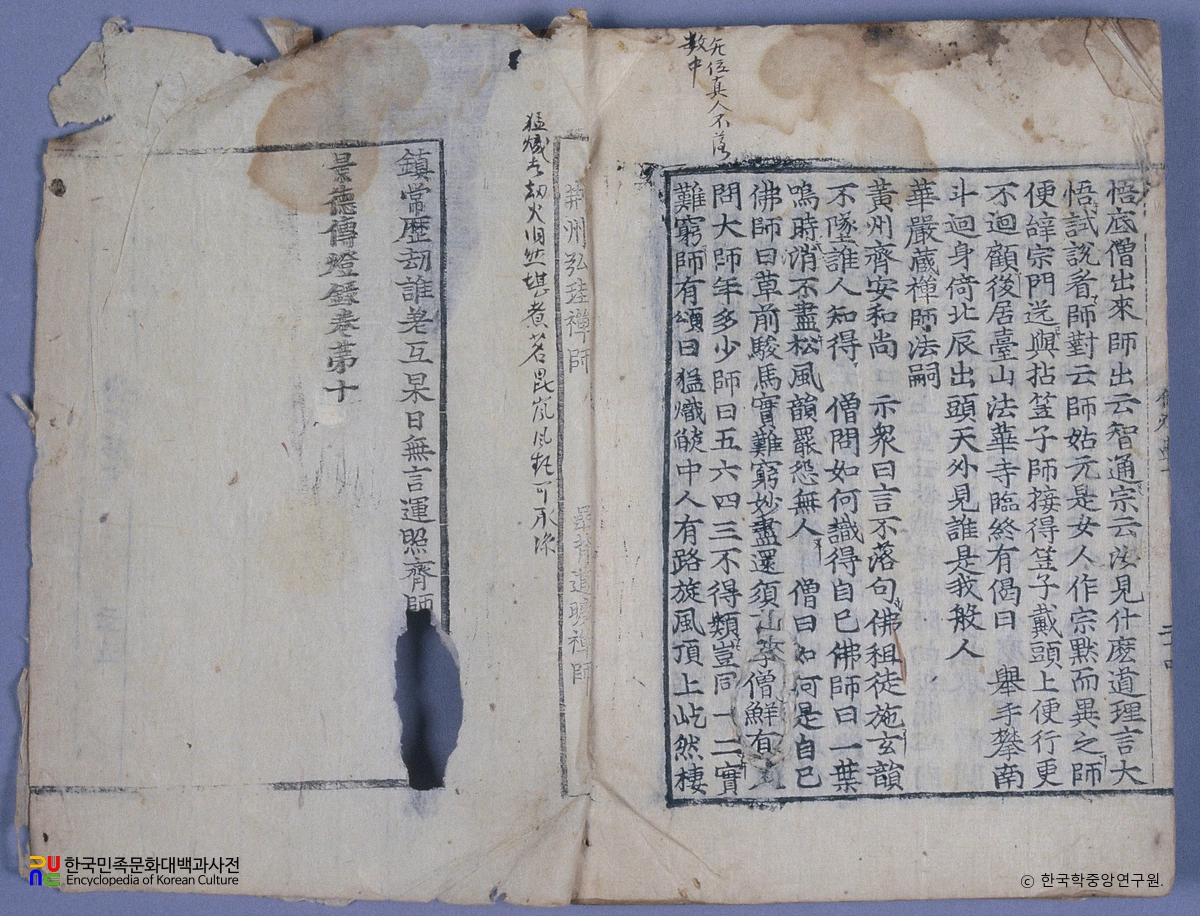 无位真人不落
数中
悟底僧出來師出云智通宗云汝見什麽道理言大
悟試說看師對云師姑元是女人作宗黙而異之師
便辝宗門送與拈笠子師接得笠子戴頭上便行更
不迴顧後居臺山法華寺臨終有偈曰 舉手攀南
斗迴身倚北辰出頭天外見誰是我般人
華嚴蔵禅師法嗣
黃州齊安和尚 示衆曰言不落句佛祖徒施玄韻
不墜誰人知得 僧問如何識得自己佛師曰一葉
明時消不盡松風韻罷怨無人 僧曰如何是自己
佛師曰草前駿馬實難窮妙盡還須畜 僧鮮有
問大師年多少師曰五六四三不得類豈同一二實
難窮師有頌曰猛熾𦦨中人有路旋風頂上屹然棲
荆州弘 禪師
道曠禅師
猛熾 劫火旧然堪煮茗毘嵐风 可 凉
鎮常歷劫誰老互杲日無言運照齊師
景德傳燈録卷苐十
한국민족문화대백과사전
Encyclopedia of Korean Culture
ⓒ 한국학중앙연구원